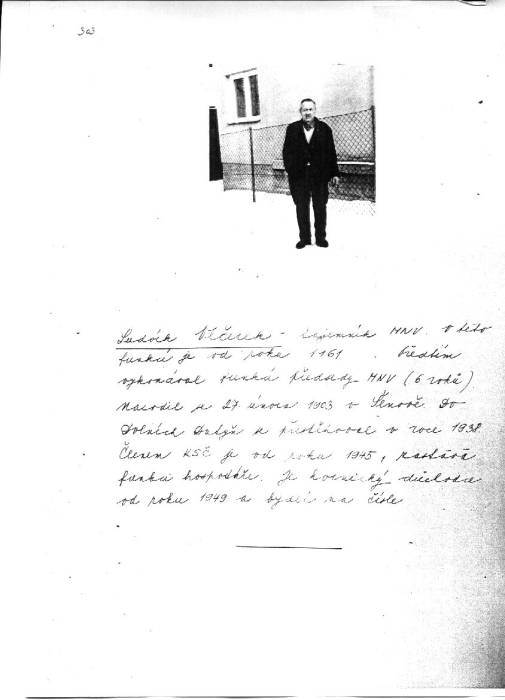 303
Ludvík Vlčecek - tajemník MNV. V této
funkci je od roku 1961. Předtím
vykonával funkci předsedy MNV (6 roků)
Narodil se 27. února 1903 v Šenově. Do
Dolních Datyň se přistěhoval v roce 1938.
Členem KSČ je od roku 1945, zastává
funkci hospodáře. Je hornický důchodce
od roku 1949 a bydlí na čísle